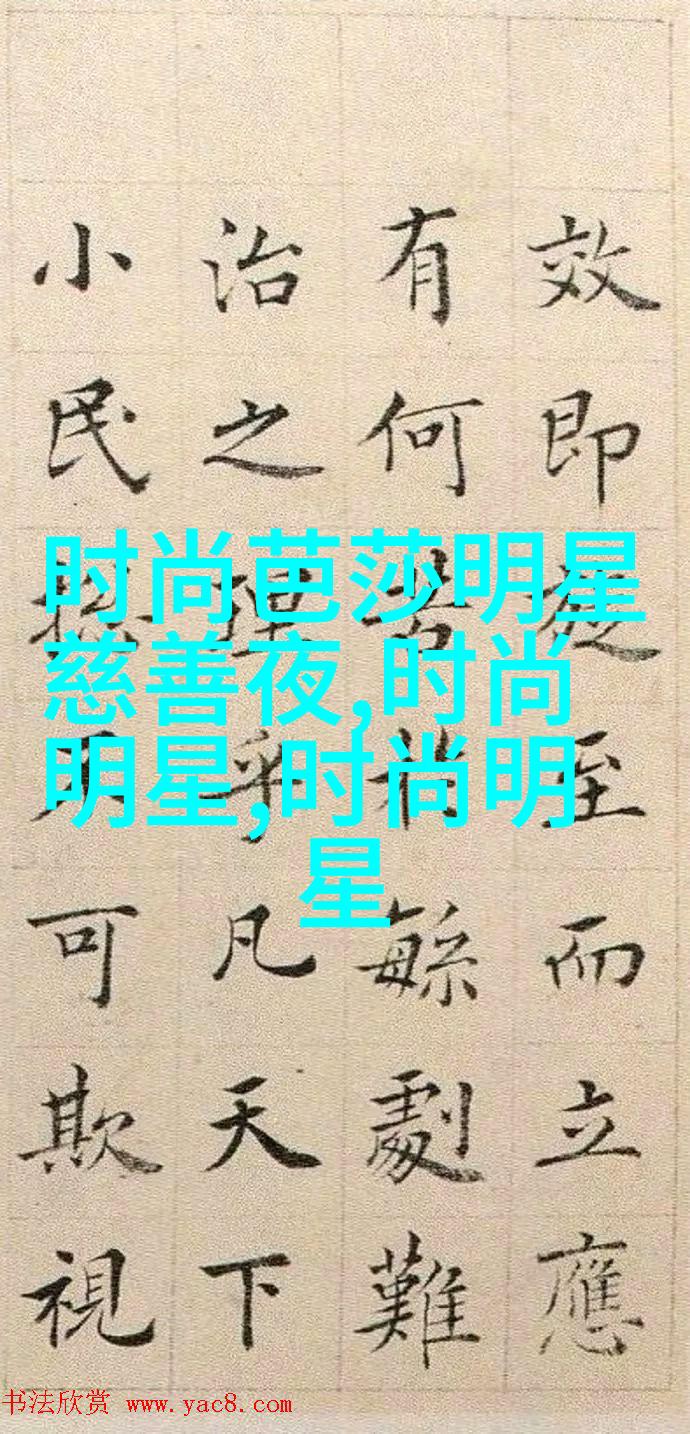 效即至而立應
有何緐劇難
治之理乎凡天下
小民可欺視
时尚芭莎明星
慈善夜,时尚
明星,时尚明
星
书法欣赏 www.yac8.com